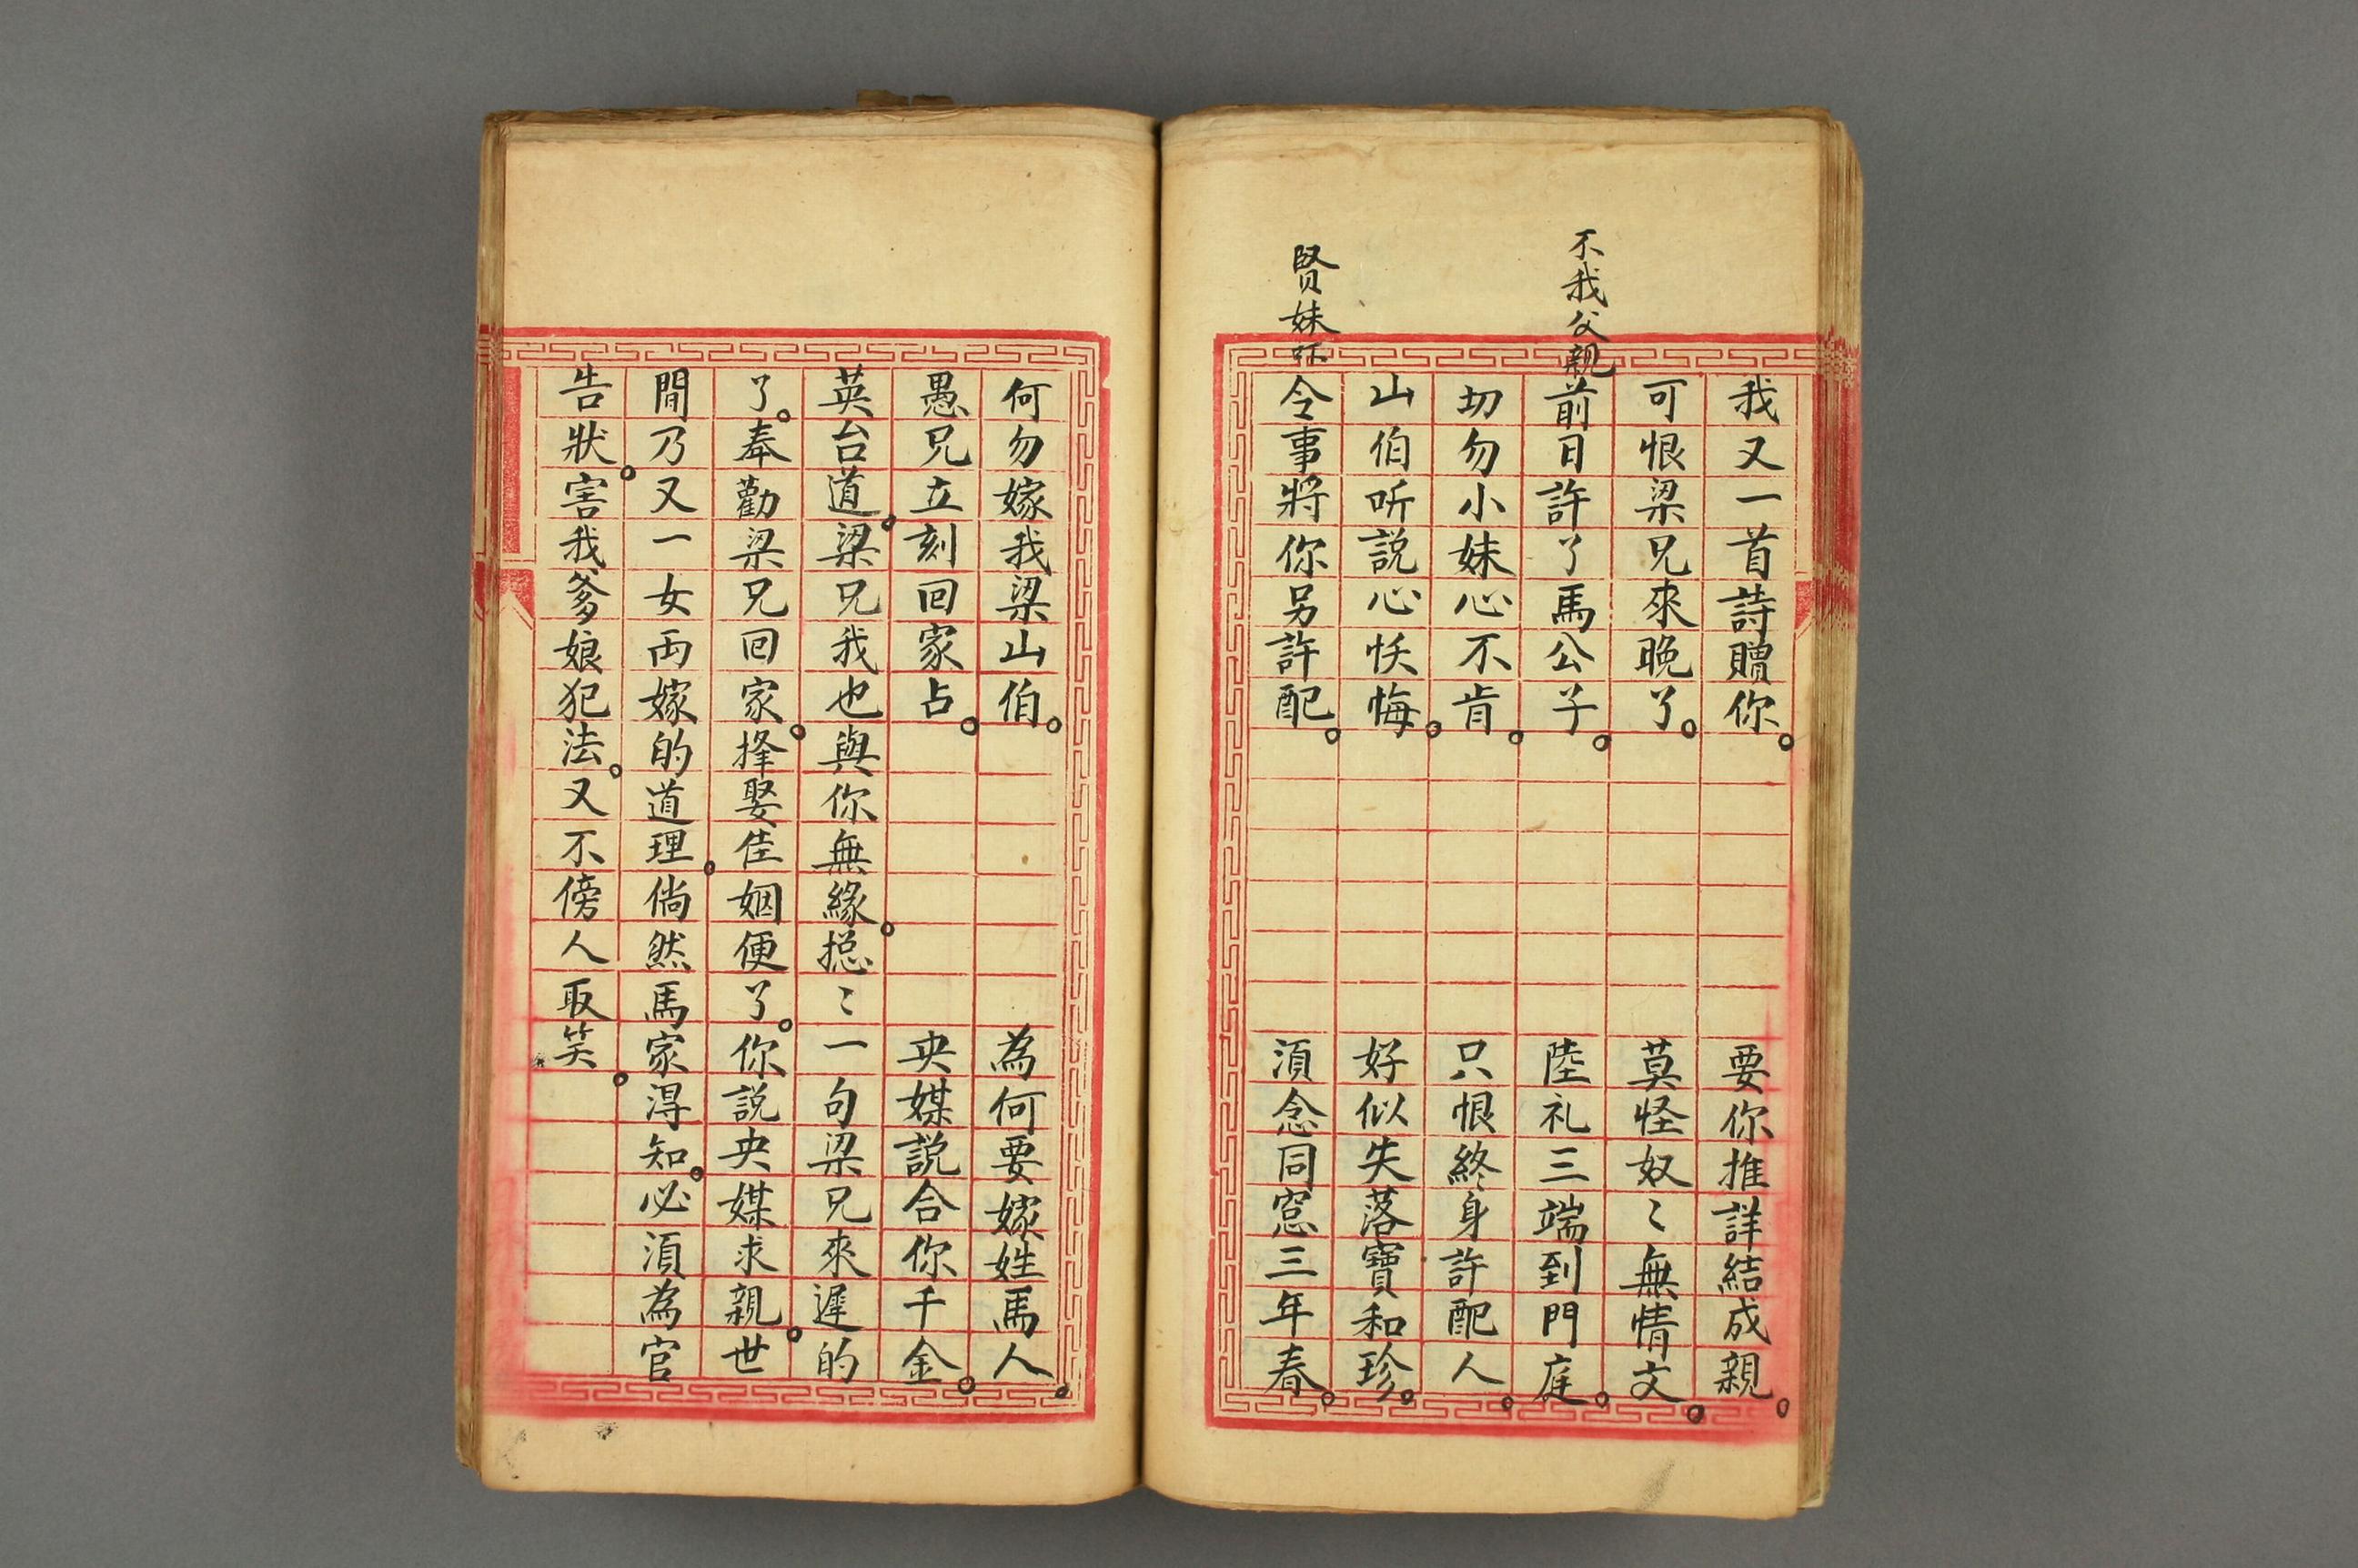 我又一首詩贈你。要你推詳結成親。
可恨梁兄來晚了。莫怪奴〻無情文。
不我父親前日許了馬公子。陸礼三端到門庭。
切勿小妹心不肯。只恨終身許配人。
山伯听説心怃悔。好似失落寶和珍。
賢妹令事將你另許配。湏念同窓三年春。
何勿嫁我梁山伯。為何要嫁姓馬人。
愚兄立刻回家占。央媒説合你千金。
英台道。梁兄我也與你無緣。揔〻一句梁兄來遲的
了。奉勸梁兄回家。擇娶佳姻便了。你説央媒求親。世
間乃又一女両嫁的道理。倘然馬家淂知。必湏為官
告狀。害我爹娘犯法。又不傍人取笑。